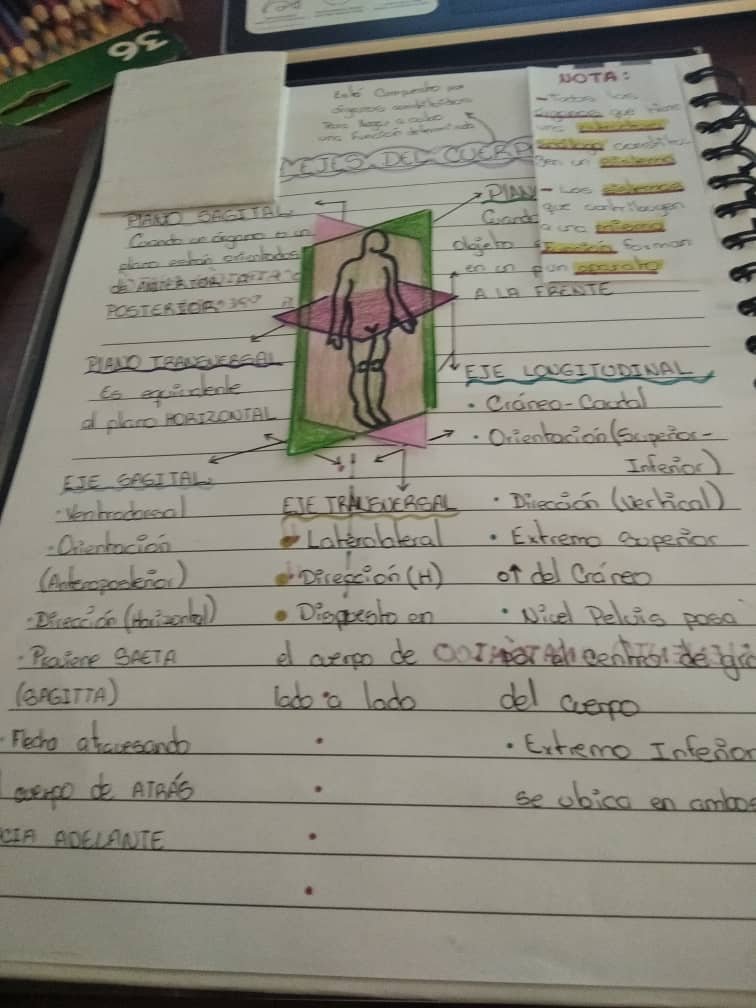 36
Está Compuesto por
órganos
una Función determinada
EJES DEL CUERP
NOTA:
- Todos los
que tiene
una
un sistema
- Los sistemas
que contribuyen
a una misma
Función forman
un aparato
PLANO SAGITAL
Cuando un órgano o un
plano están orientados
de
POSTERIOR
PLANO TRANSVERSAL
Es equivalente
al plano HORIZONTAL
PLAN
Cuand
objeto
en un plan
A LA FRENTE
EJE LONGITUDINAL
• Cráneo-Caudal
• Orientación (Superior-
Inferior)
• Dirección (vertical)
• Extremo superior
del Cráneo
• Nivel Pelvis pasa
centro de
del cuerpo
• Extremo Inferior
se ubica en ambos
EJE SAGITAL:
• Ventrodorsal
• Orientación
(Anteroposterior)
• Dirección (Horizontal)
• Proviene SAETA
(SAGITTA)
• Flecha atravesando
cuerpo de ATRÁS
CIA ADELANTE
EJE TRANSVERSAL
• Laterolateral
• Dirección (H)
• Dispuesto en
el cuerpo de
lado a lado